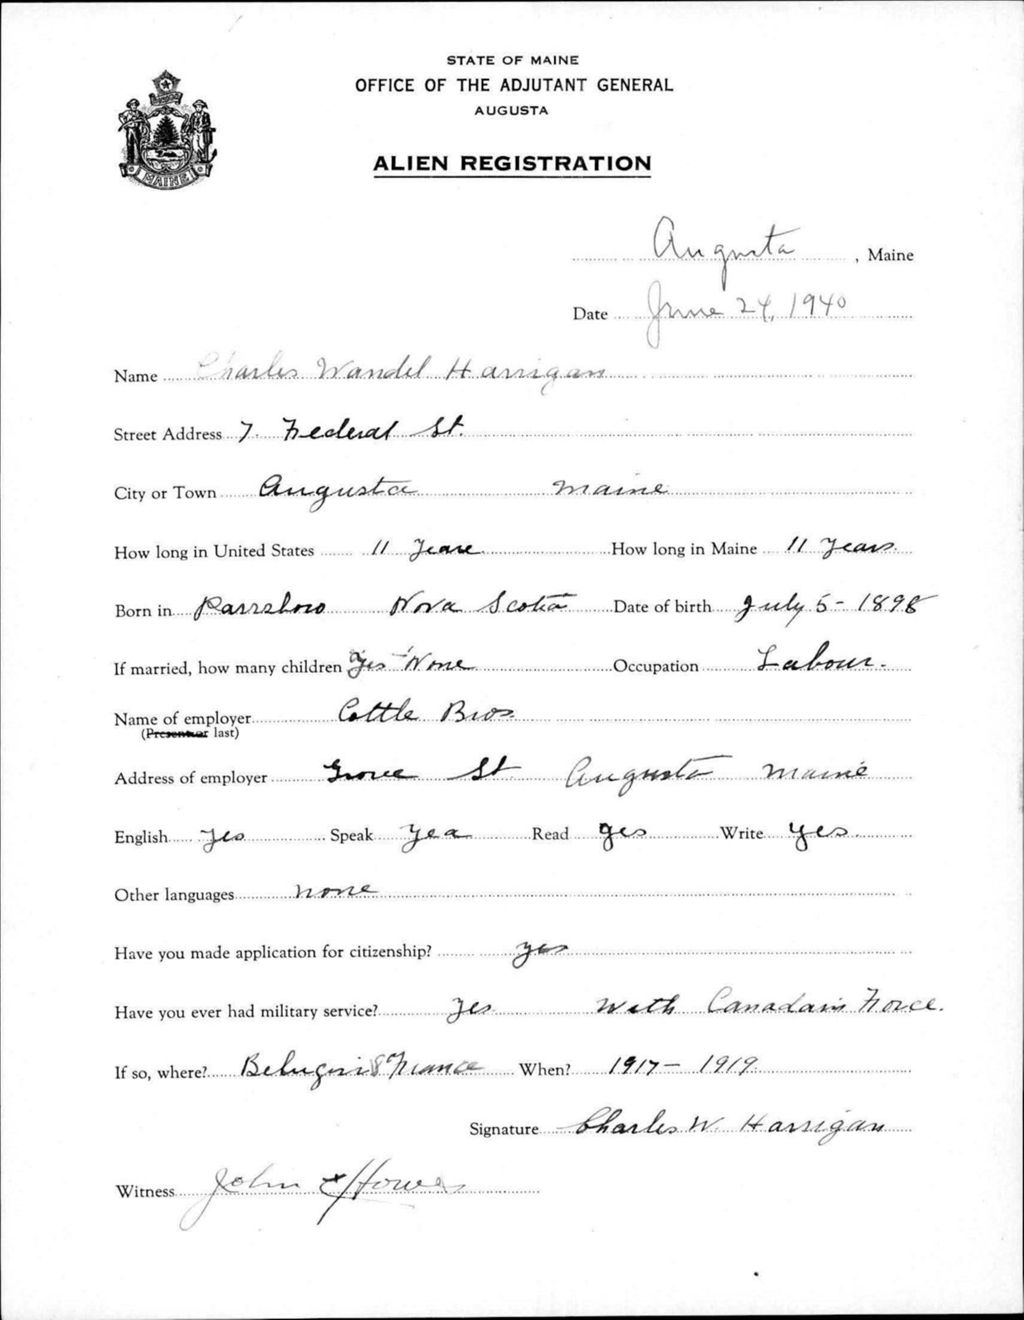 STATE OF MAINE
OFFICE OF THE ADJUTANT GENERAL
AUGUSTA
MAINE
ALIEN REGISTRATION
Augusta, Maine
Date June 24, 1940
Name Charles Wandel Harrigan
Street Address 7 Federal St.
City or Town Augusta Maine
How long in United States 11 Years How long in Maine 11 Years
Born in Parrsboro Nova Scotia Date of birth July 5 - 1898
If married, how many children Yes - None Occupation Labour.
Name of employer Cottle Bros.
(Present or last)
Address of employer Grove St Augusta Maine
English Yes Speak Yea Read yes Write yes
Other languages none
Have you made application for citizenship? yes
Have you ever had military service? Yes With Canadain Force.
If so, where? & France When? 1917 - 1919
Signature Charles W. Harrigan
Witness John E Howes